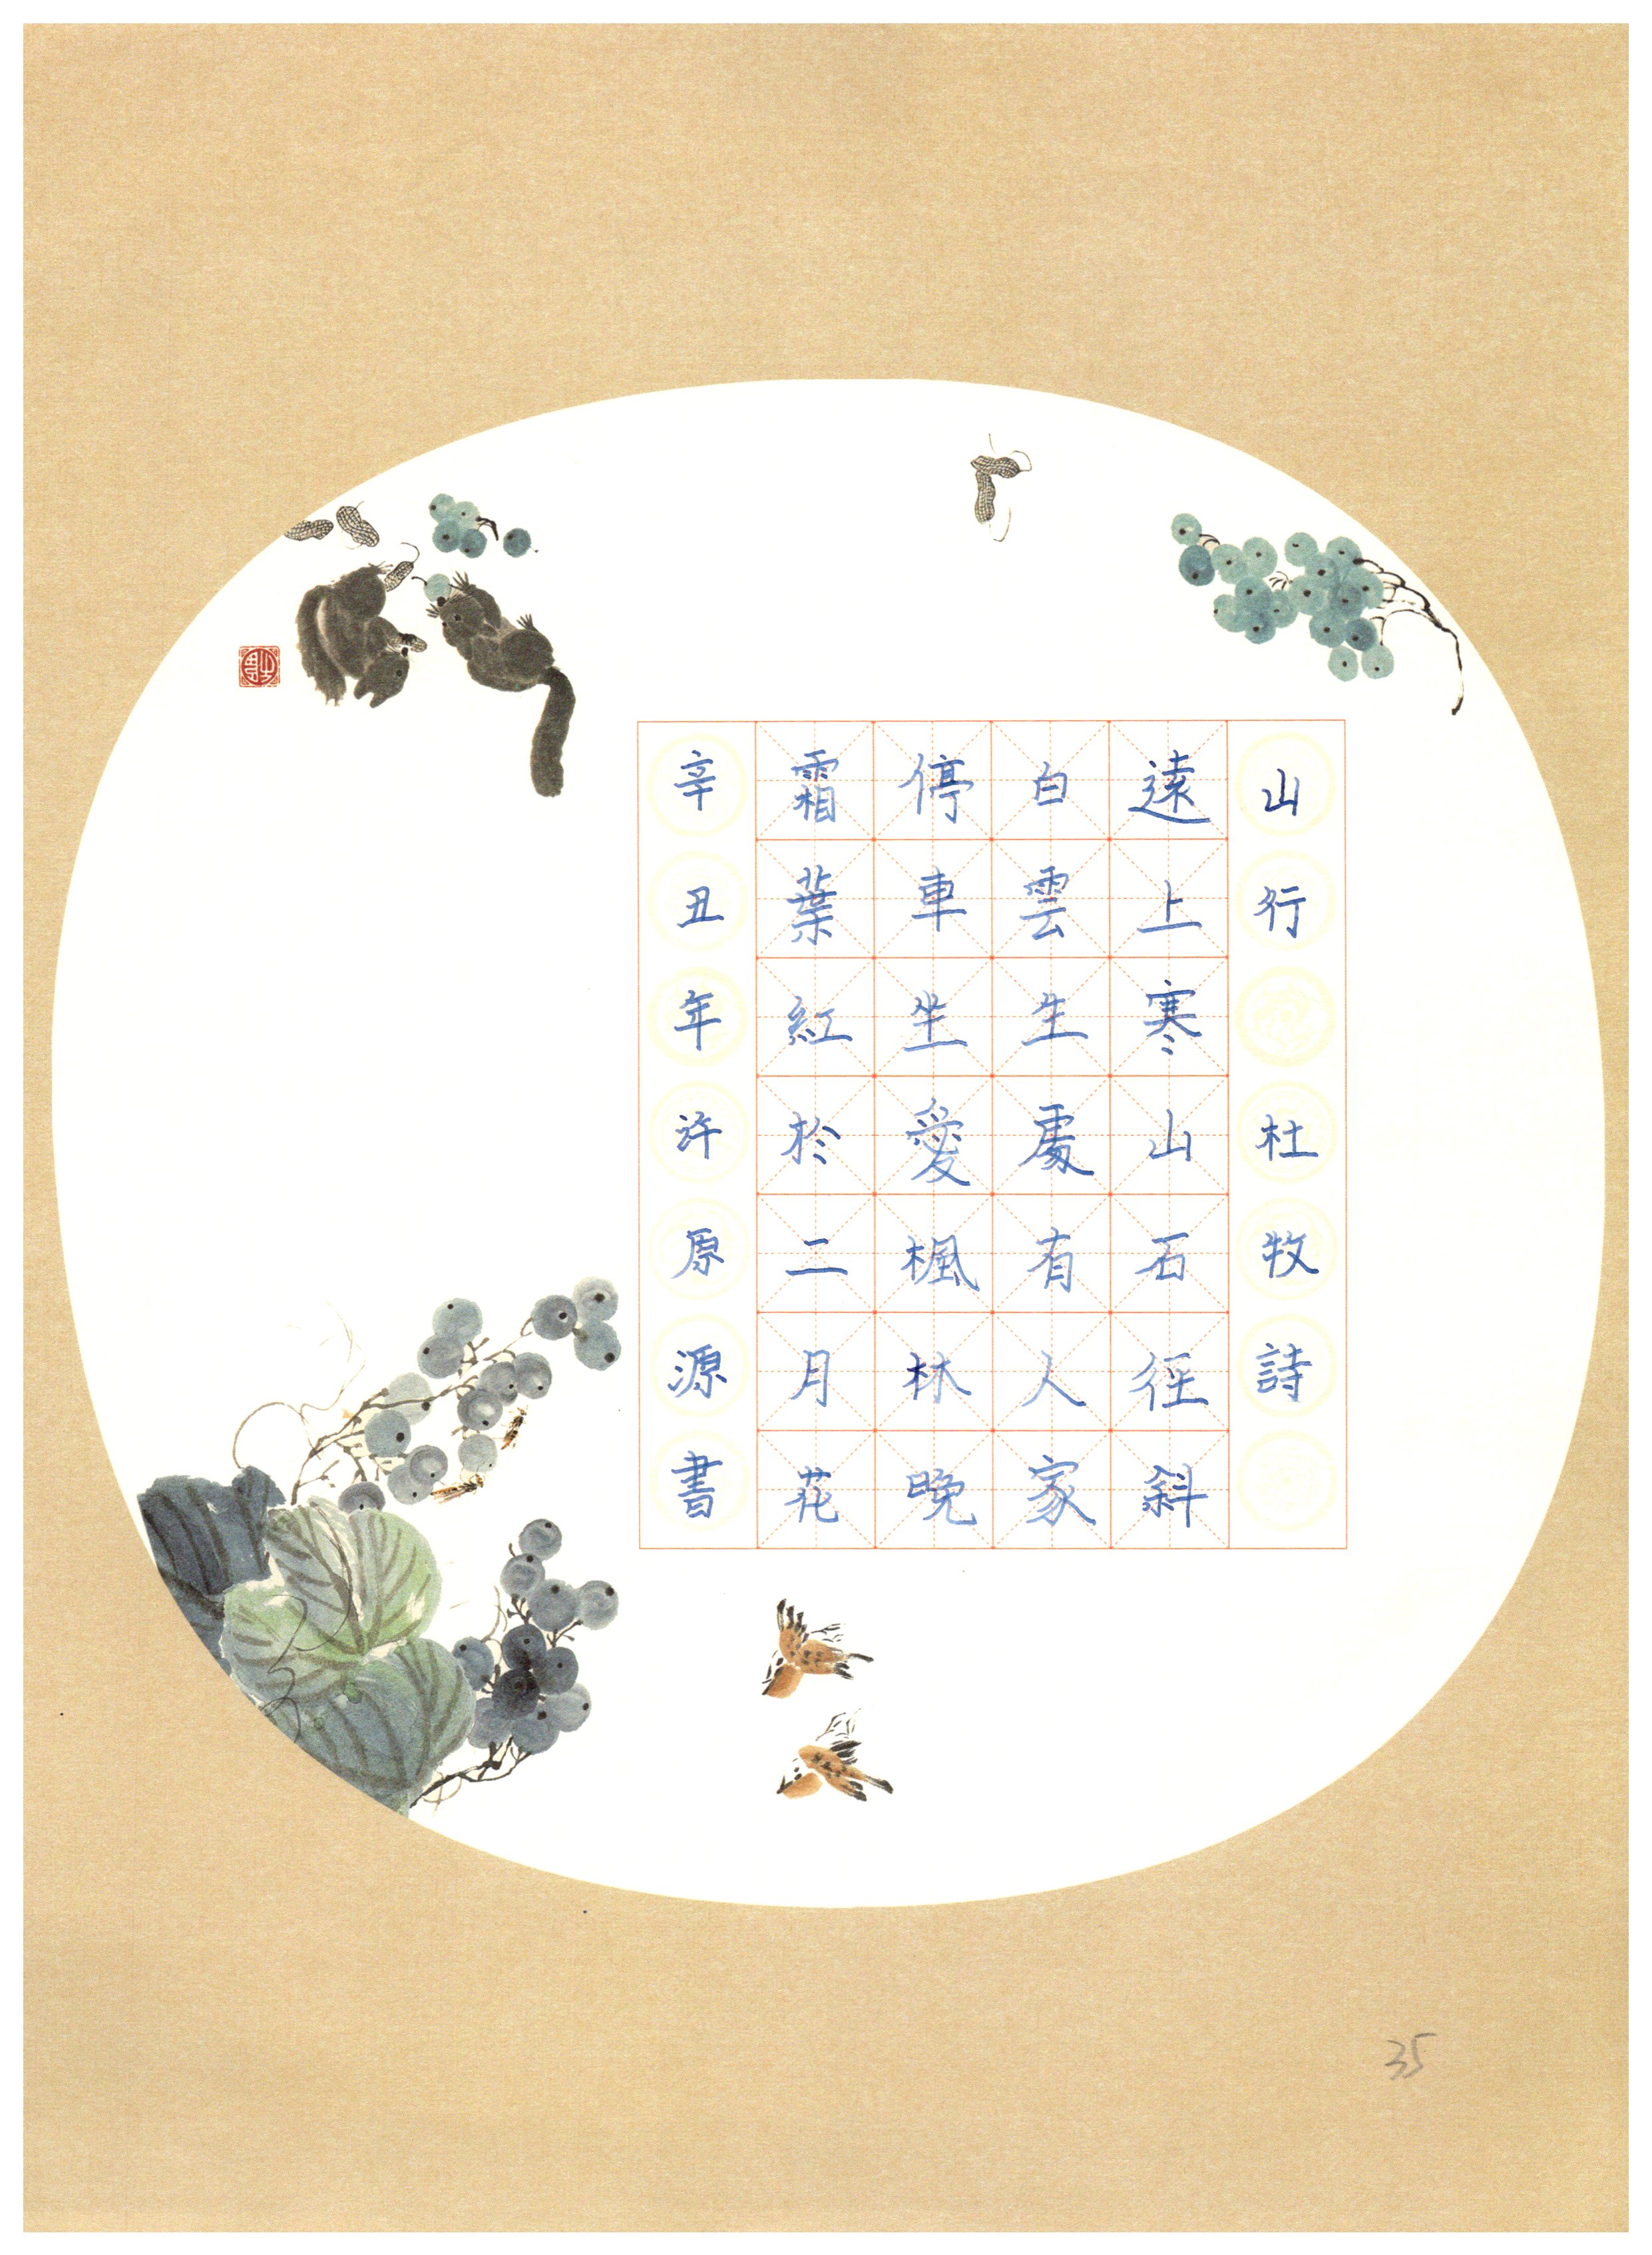 山行 杜牧詩
遠上寒山石徑斜
白雲生處有人家
停車坐愛楓林晚
霜葉紅於二月花
辛丑年許原源書
35